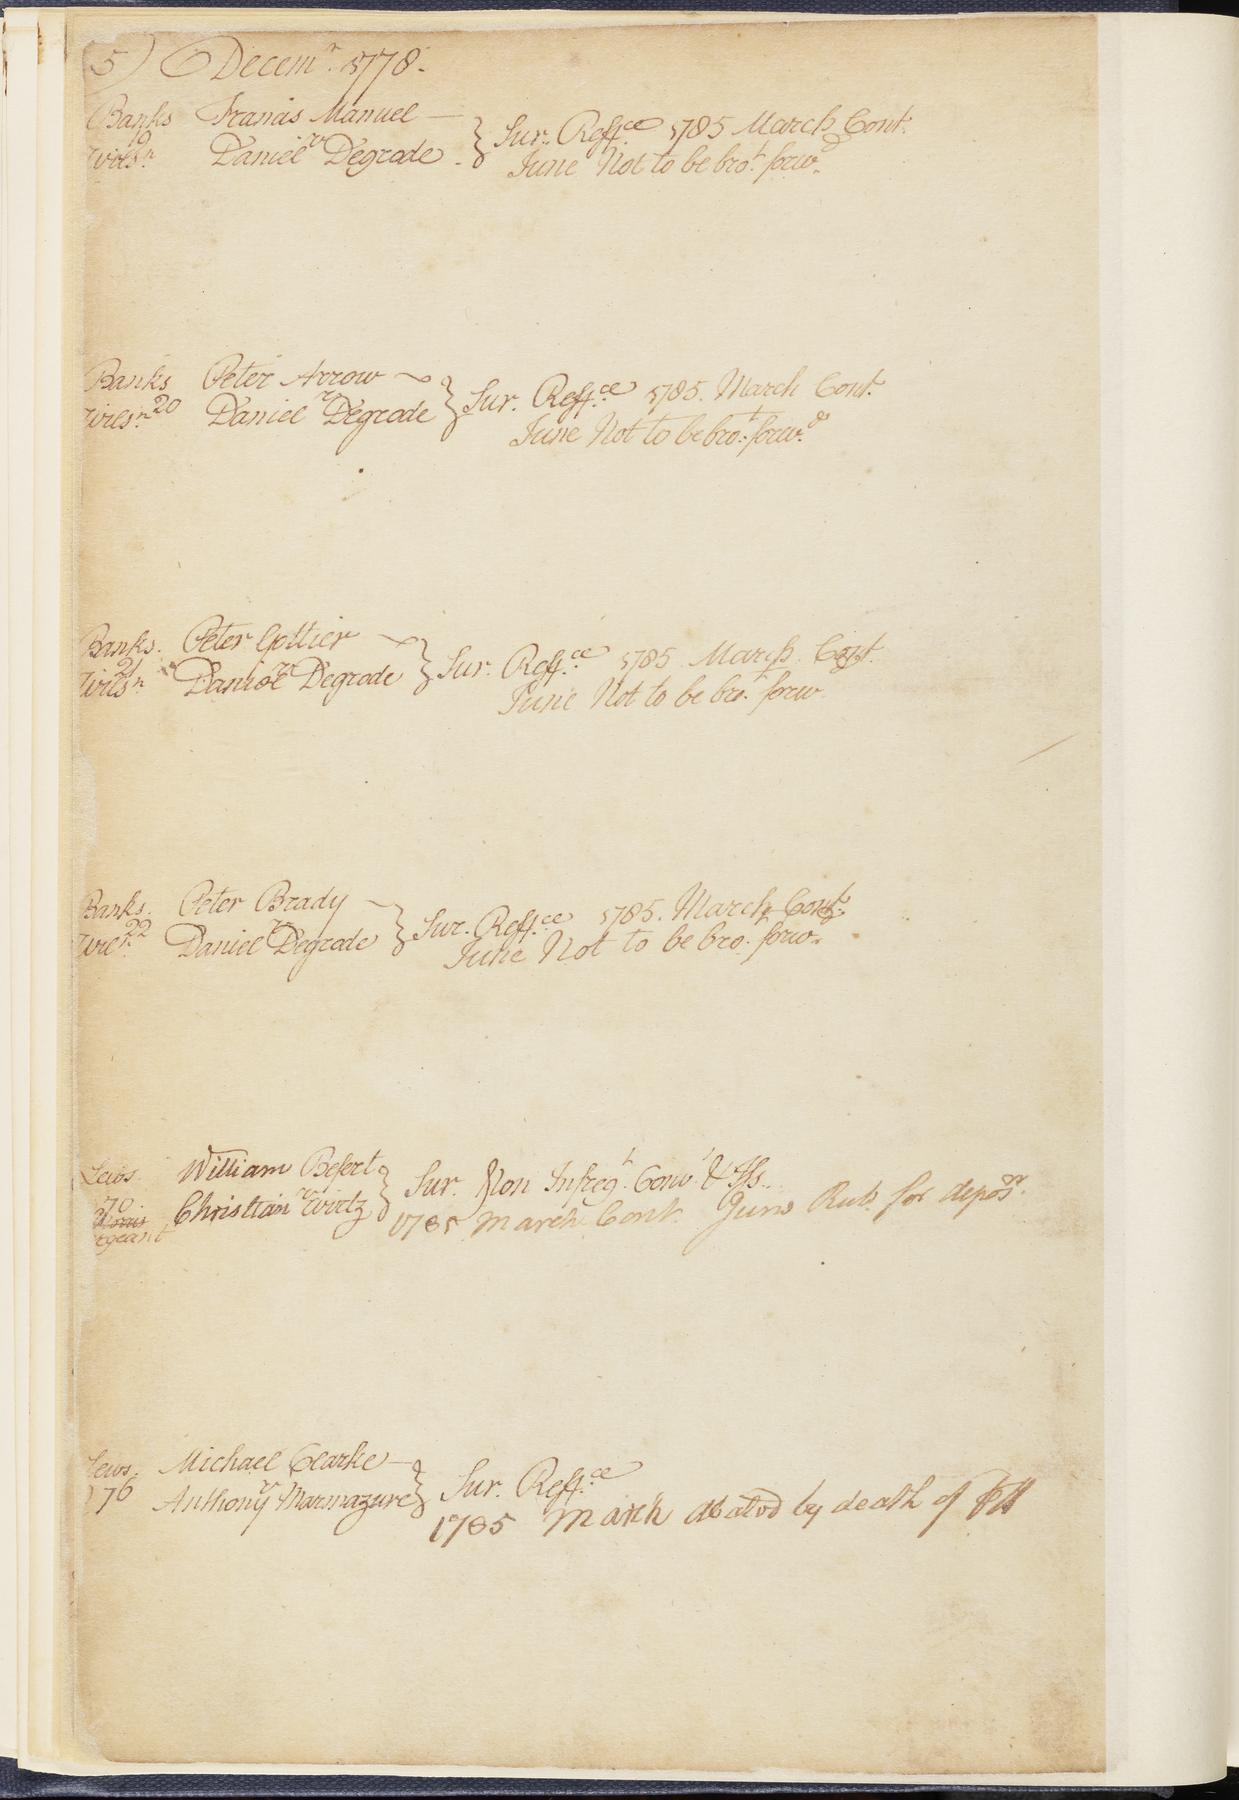 5) Decem.r 1778.
Banks Francis Manuel — } Sur. Reff.ce 1785 March Cont.
19
Wils.n vr Daniel Degrode } June Not to be bro.t forw.d
Banks Peter Arrow } Sur. Reff.ce 1785. March Cont.
Wils.n 20 vr Daniel Degrode } June Not to be bro.t forw.d
Banks. Peter Gottier } Sur. Reff.ce 1785 March. Cont.
21
Wils.n vr Daniel Degrode } June Not to be bro.t forw.
Banks. Peter Brady } Sur. Reff.ce 1785. March Cont.
22
Wil.n vr Daniel Degrode } June Not to be bro.t forw.d
Lews. William Befert } Sur. Non Infreg.t Conv.t & Iss.
70
Christian vr Wirtz } 1785 March Cont. June Rub. for depos.n
egeant
Lews. Michael Clarke — } Sur. Reff.ce
176 Anthony vr Marmazure } 1785 March abated by death of Pltf